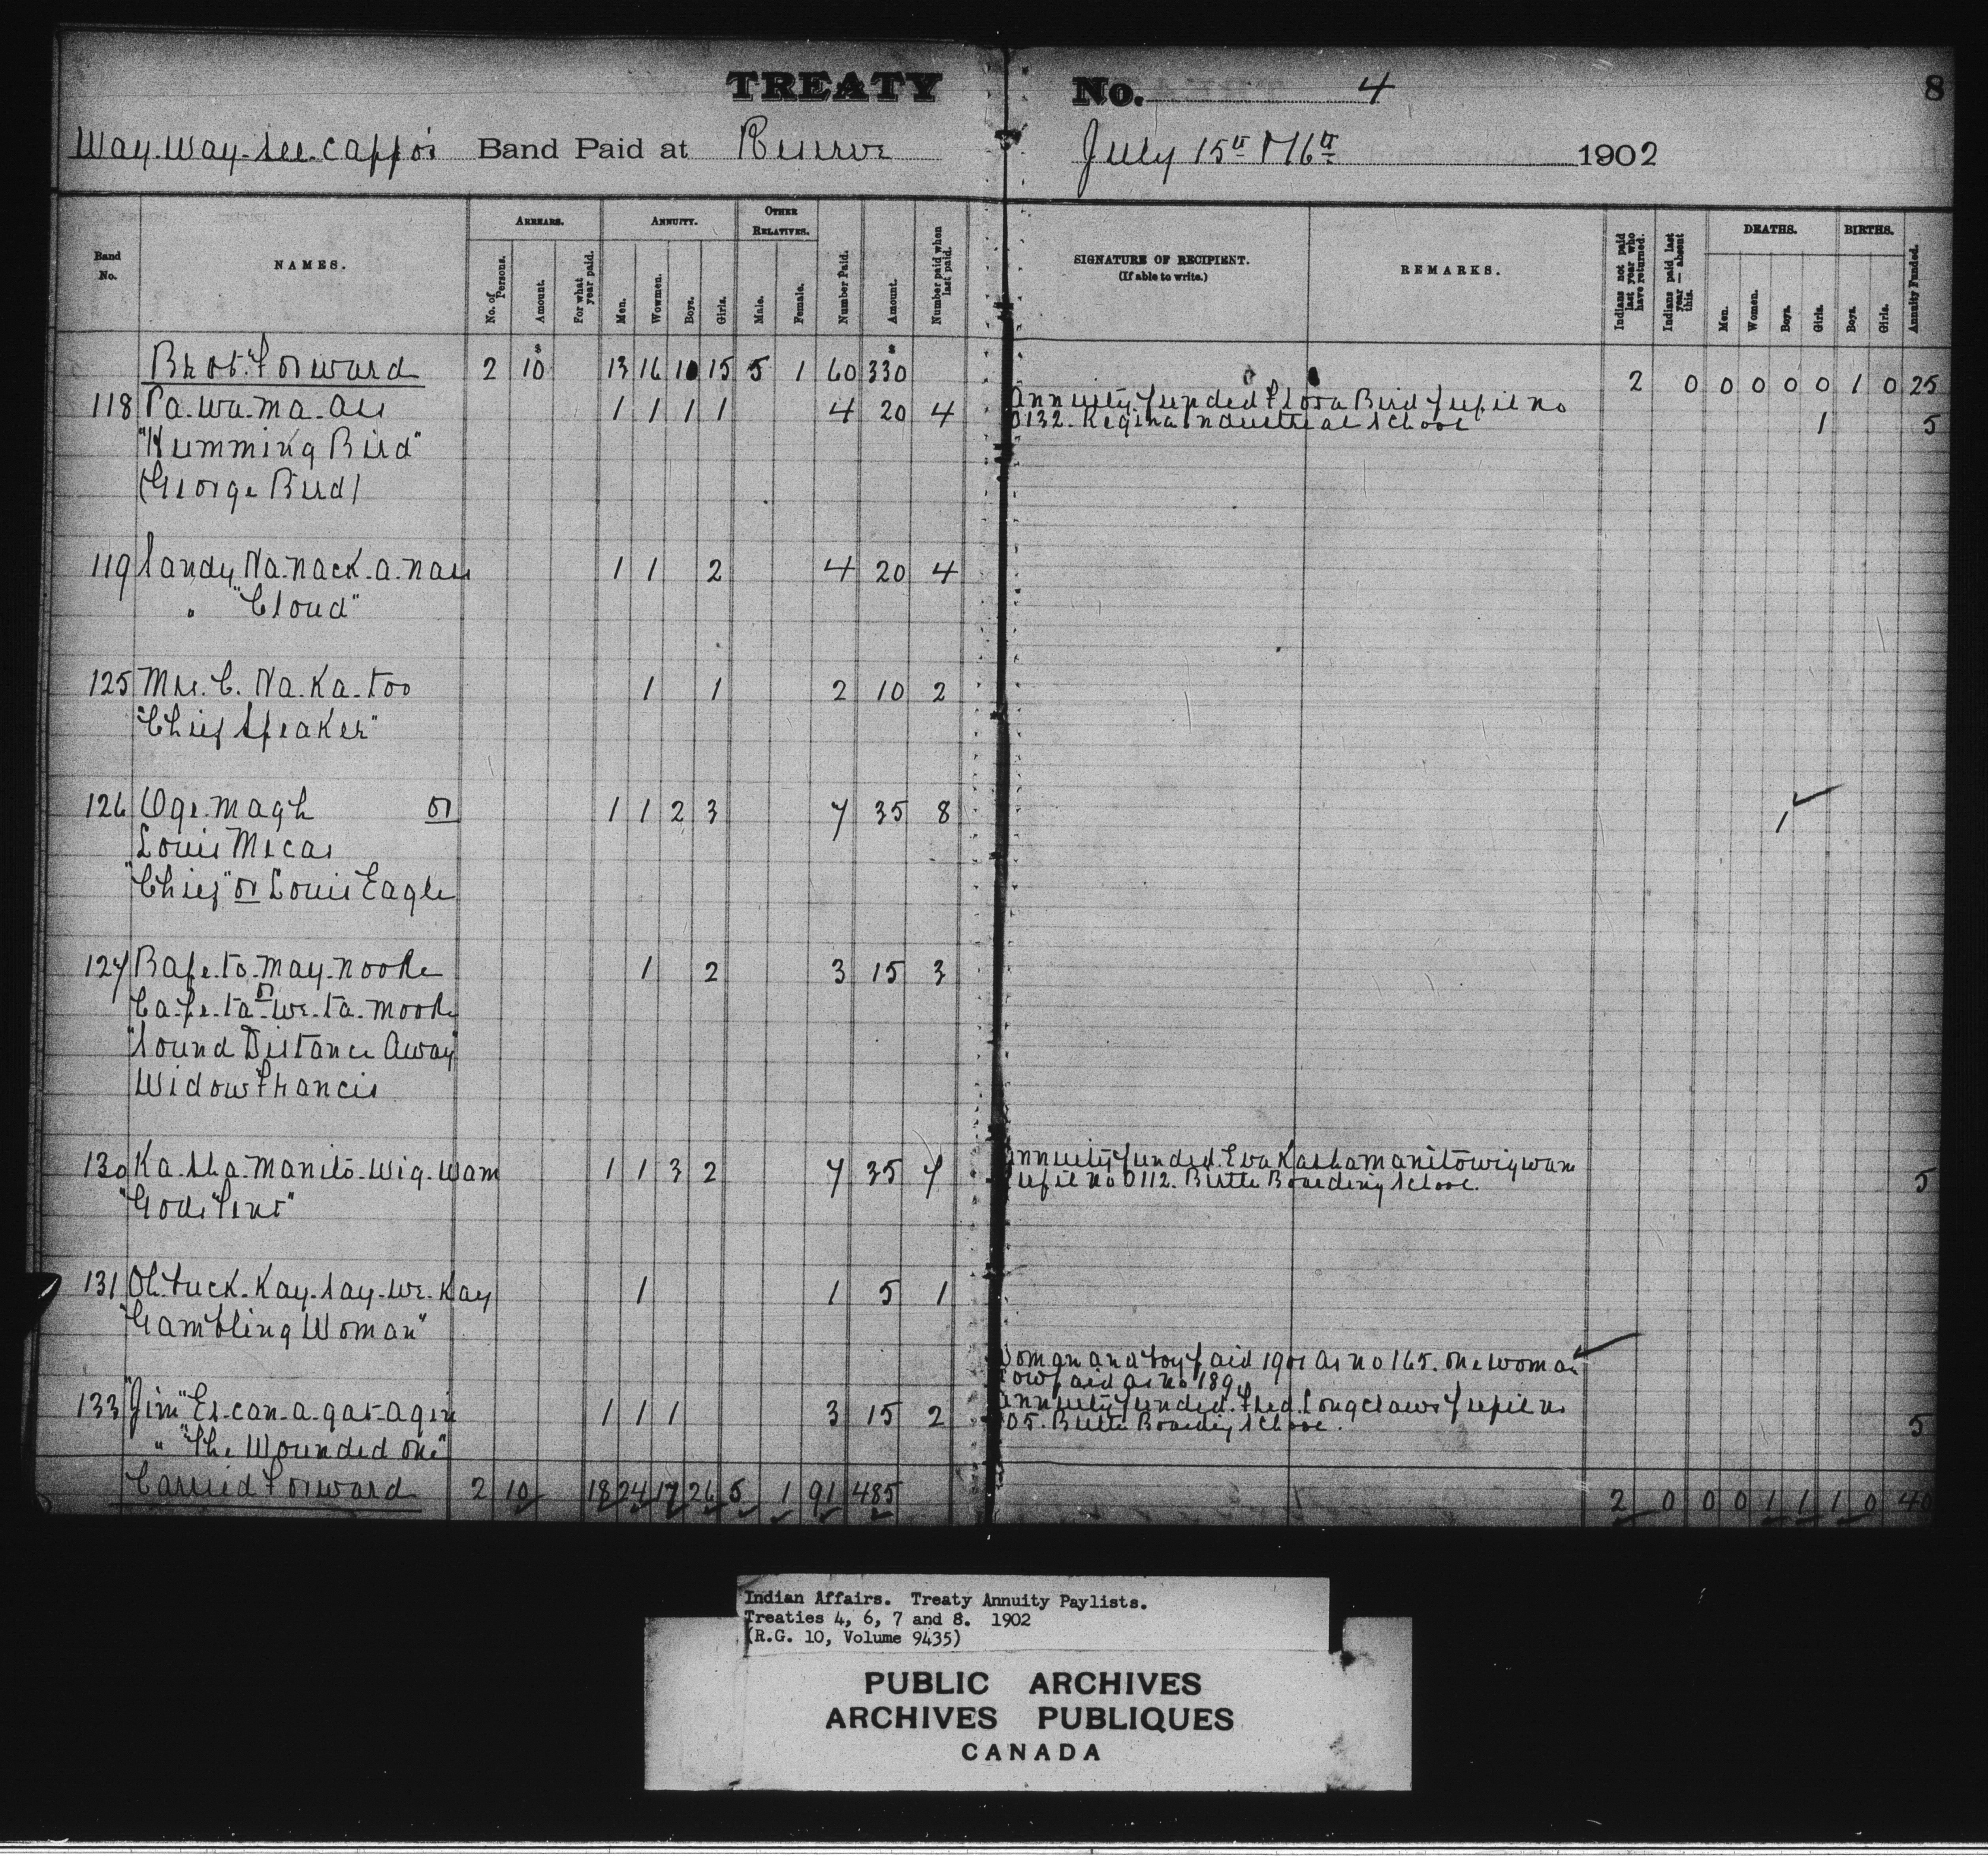 TREATY No. 4 8
Way-Way-See-Cappo's Band Paid at Reserve July 15th & 16th 1902
Band No.
NAMES.
ARREARS.
No. of Persons.
Amount.
For what year paid.
ANNUITY.
Men.
Wowmen.
Boys.
Girls.
OTHER RELATIVES.
Male.
Female.
Number Paid.
Amount.
Number paid when last paid.
SIGNATURE OF RECIPIENT.
(If able to write.)
REMARKS.
Indians not paid last year who have returned.
Indians paid last year — absent this.
DEATHS.
Men.
Women.
Boys.
Girls.
BIRTHS.
Boys.
Girls.
Annuity Funded.
Brot. Forward 2 $10 13 16 10 15 5 1 60 $330 2 0 0 0 0 0 1 0 25
118 Pa-wa-ma-aus 1 1 1 1 4 20 4 Annuity funded Flora Bird pupil no
0132. Regina Industrial School 1 5
"Humming Bird"
(George Bird)
119 Sandy Na-nack-a-nau 1 1 2 4 20 4
" "Cloud"
125 Mrs. C. Na-Ka-too 1 1 2 10 2
"Chief Speaker"
126 Oge-magh or 1 1 2 3 7 35 8 1
Louis Mecas
"Chief" or Louis Eagle
127 Bape-to-may-nooke 1 2 3 15 3
or
Ca-pe-ta-we-ta-mooke
"Sound Distance Away"
Widow Francis
130 Ka-sha-manito-wig-wam 1 1 3 2 7 35 7 Annuity funded. Eva Kashamanitowigwam
pupil no 0112. Birtle Boarding School. 5
"Gods Tent"
131 Oh-tuck-Kay-say-we-Kay 1 1 5 1
"Gambling Woman"
Woman and boy paid 1901 as no 165. One woman
now paid as no 189.
133 "Jim" Es-can-a-gat-agin 1 1 1 3 15 2 Annuity funded. Fred. Longclaws pupil no
05. Birtle Boarding School. 5
" "The Wounded One"
Carried Forward 2 10 18 24 17 26 5 1 91 485 2 0 0 0 1 1 1 0 40
Indian Affairs. Treaty Annuity Paylists.
Treaties 4, 6, 7 and 8. 1902
(R.G. 10, Volume 9435)
PUBLIC ARCHIVES
ARCHIVES PUBLIQUES
CANADA